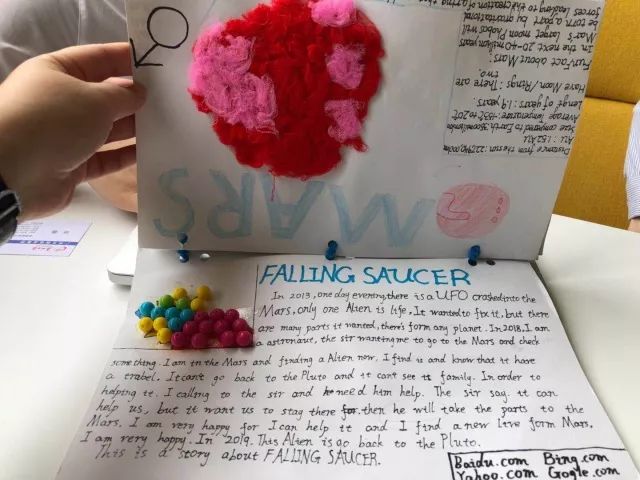 MARS
Distance from the sun:
AU: 1.52AU
Size compared to Earth:
Average temperature: -153°C to 20°C
Lengt of years: 1.9 years
Have Moon/Rings: There are
two.
FunFact about Mars:
In the next 20-40 million years
Mars's target moon Phobos will
be torn a part by gravitational
forces leading to
FALLING SAUCER
In 2013, one day evening, there is a UFO crashed into the
Mars, only one Alien is life. It wanted to fix it, but there
are many parts it wanted, there's form any planet. In 2018, I am
a astronaut, the sir wanting me to go to the Mars and check
something. I am in the Mars and finding a Alien now. I find it and know that it have
a trabel. It can't go back to the Pluto and it cant see it family. In order to
helping it. I calling to the sir and need him help. The sir say it can
help us, but it want us to stay there for, then he will take the parts to the
Mars. I am very happy for I can help it and I find a new live form Mars.
I am very happy. In 2019. This Alien is go back to the Pluto.
This is a story about FALLING SAUCER.
Baidu.com Bing.com
Yahoo.com Gogle.com